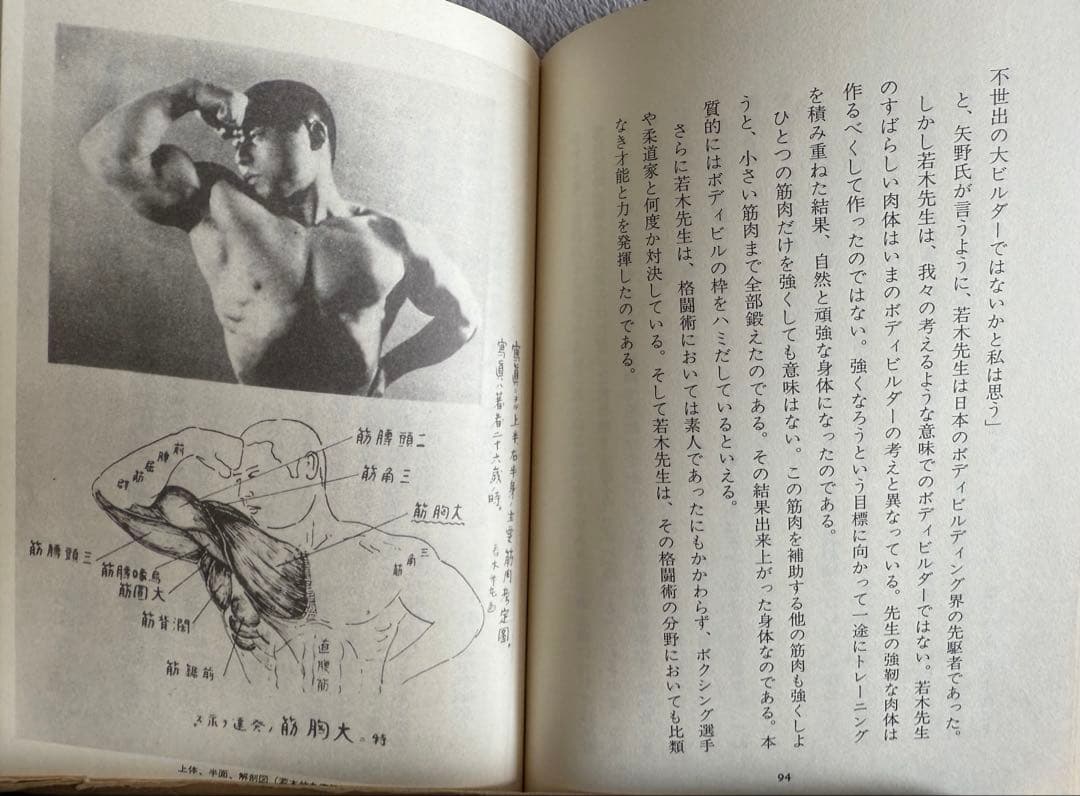 不世出の大ビルダーではないかと私は思う」
と、矢野氏が言うように、若木先生は日本のボディビルディング界の先駆者であった。
しかし若木先生は、我々の考えるような意味でのボディビルダーではない。若木先生
のすばらしい肉体はいまのボディビルダーの考えと異なっている。先生の強靭な肉体は
作るべくして作ったのではない。強くなろうという目標に向かって一途にトレーニング
を積み重ねた結果、自然と頑強な身体になったのである。
ひとつの筋肉だけを強くしても意味はない。この筋肉を補助する他の筋肉も強くしよ
うと、小さい筋肉まで全部鍛えたのである。その結果出来上がった身体なのである。本
質的にはボディビルの枠をハミだしているといえる。
さらに若木先生は、格闘術においては素人であったにもかかわらず、ボクシング選手
や柔道家と何度か対決している。そして若木先生は、その格闘術の分野においても比類
なき才能と力を発揮したのである。
94
寫眞ハ著者二十六歳時。
筋膊頭二
筋角三
筋胸大
三角筋
筋膊頭三
筋膊喙烏
筋圓大
筋背濶
筋鋸前
直腹筋
特ニ大胸筋ノ發達ヲ示ス
上体、半面、解剖図